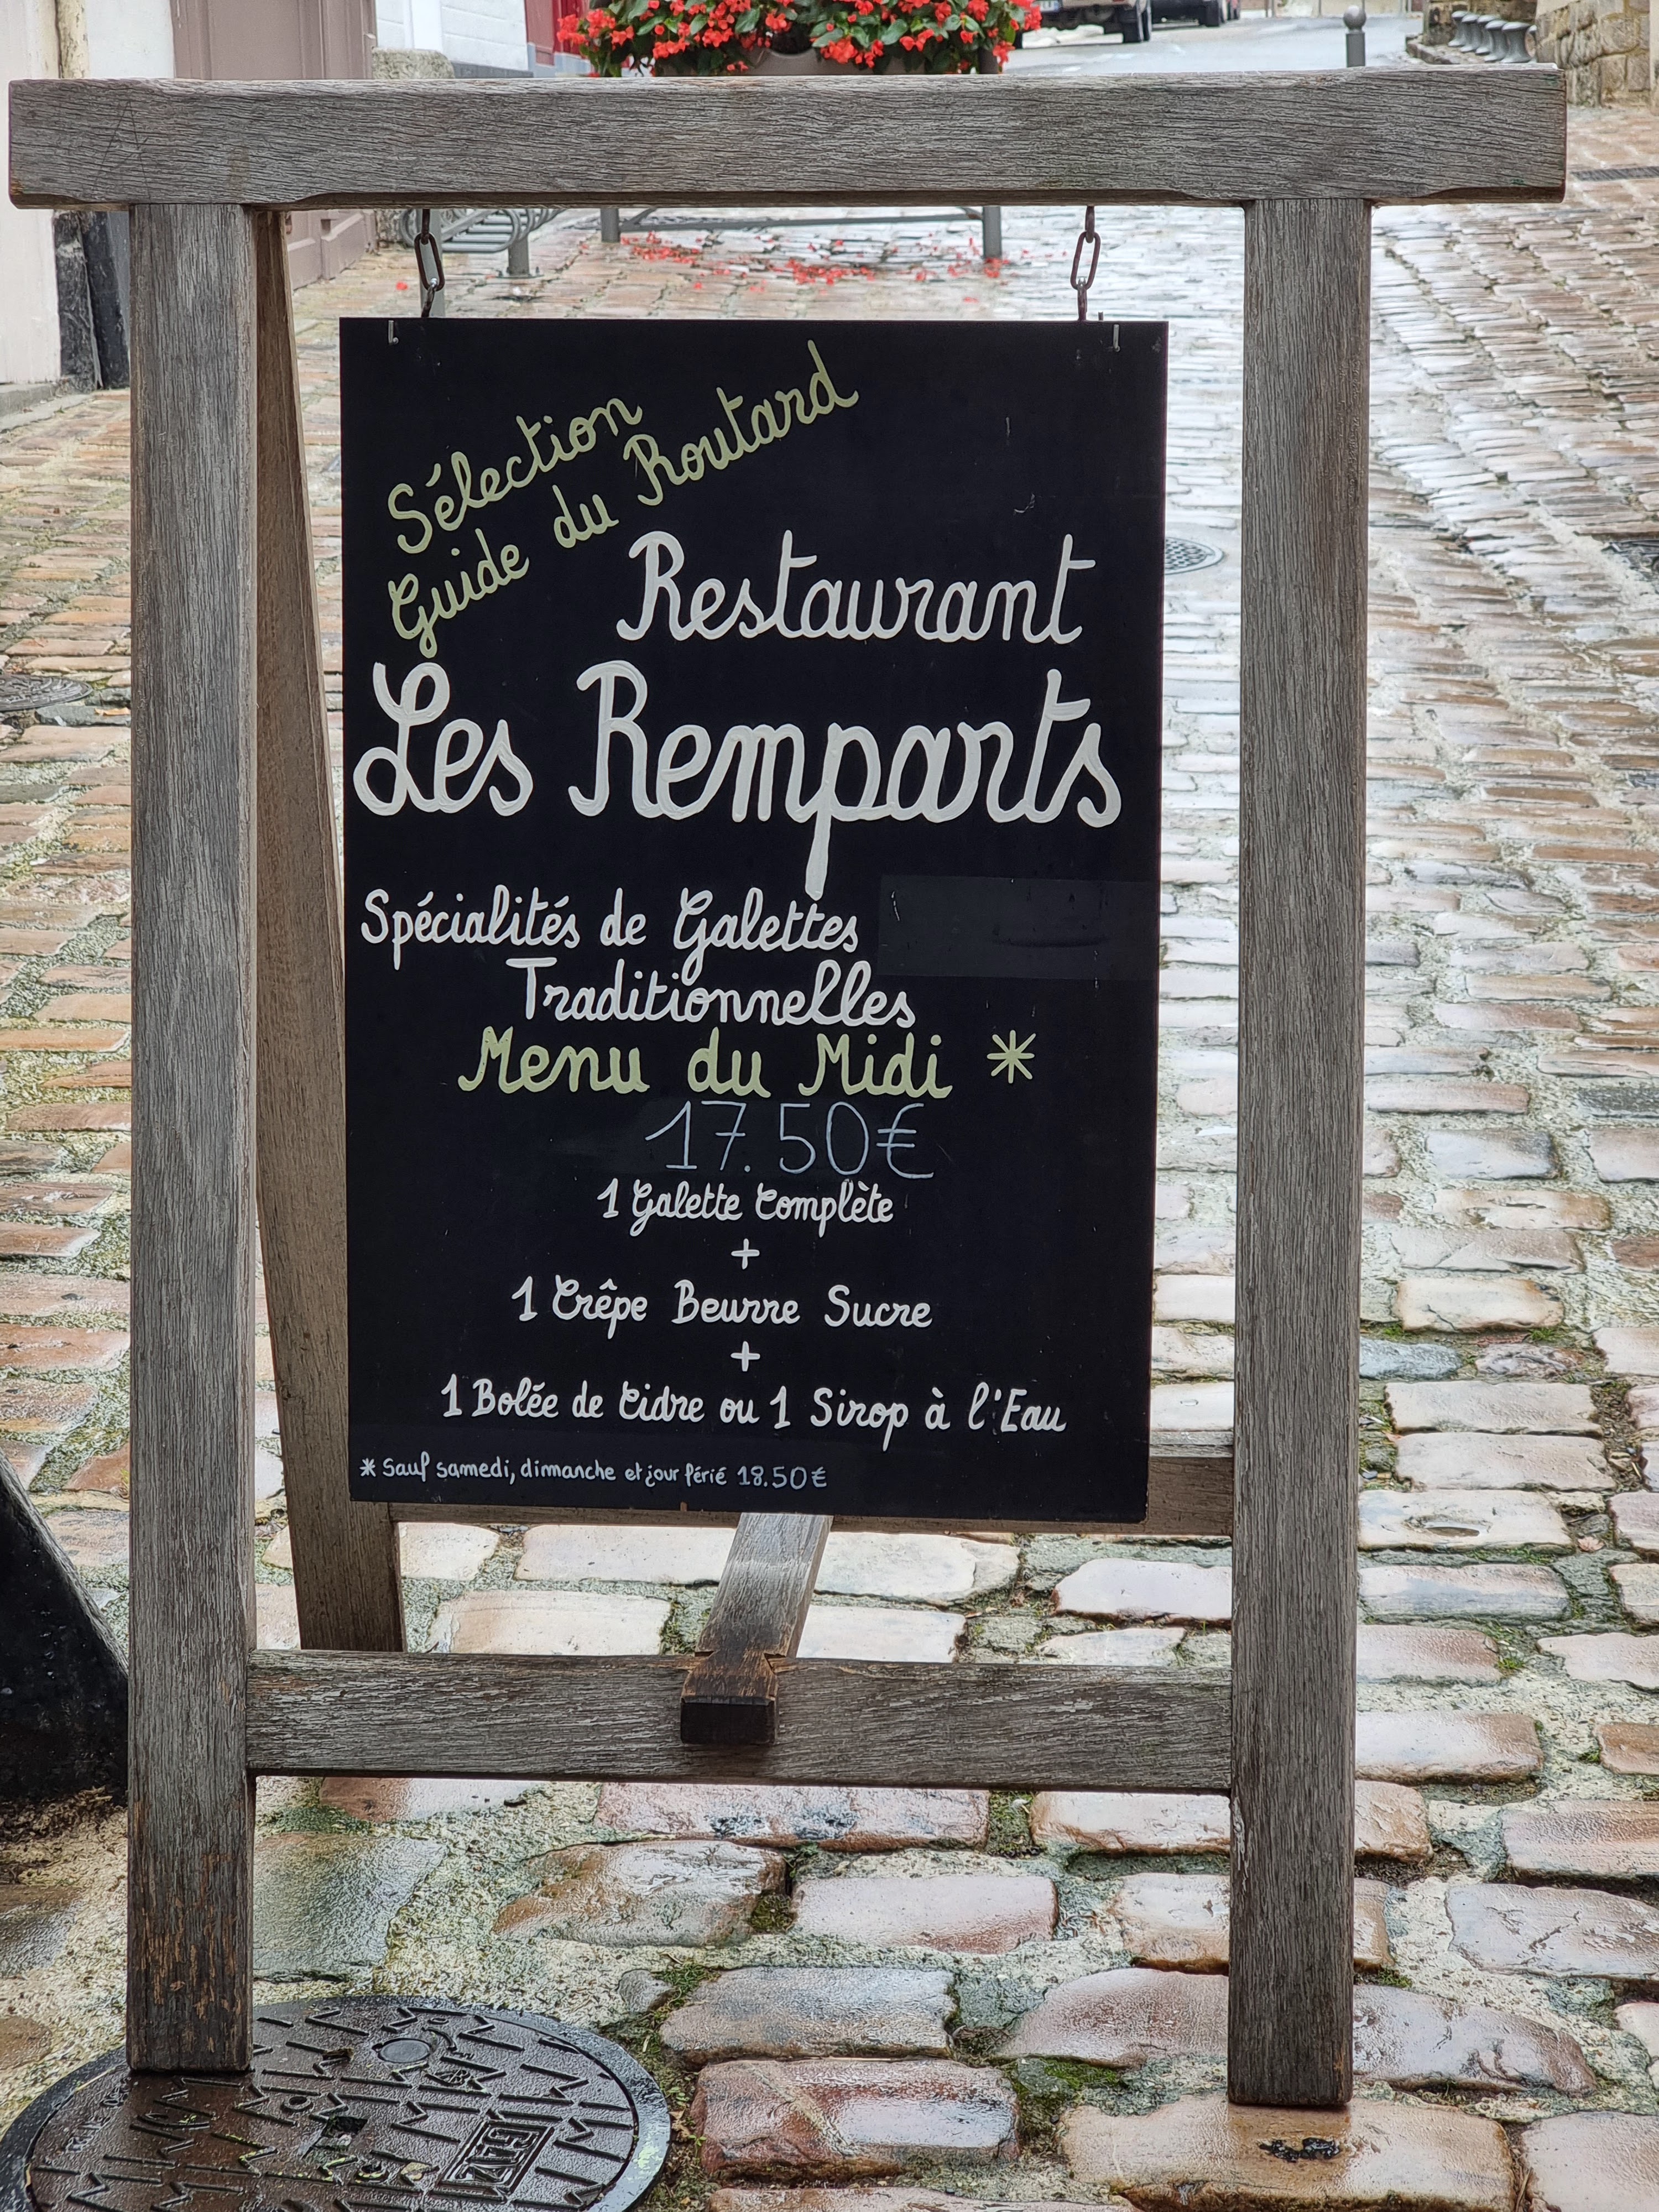 Sélection
Guide du Routard
Restaurant
Les Remparts
Spécialités de Galettes
Traditionnelles
Menu du Midi *
17.50€
1 Galette Complète
+
1 Crêpe Beurre Sucre
+
1 Bolée de Cidre ou 1 Sirop à l'Eau
* Sauf samedi, dimanche et jour férié 18.50€